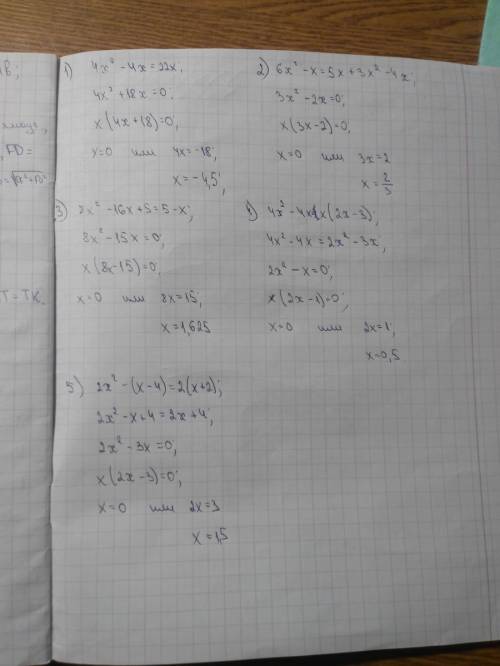 1) 4x² - 4x = 22x.
4x² + 18x = 0.
x(4x+18)=0;
x=0 или 4x=-18;
x=-4,5;
2) 6x² - x = 5x + 3x² - 4x;
3x² - 2x = 0;
x(3x-2)=0;
x=0 или 3x=2
x=2/3
3) 8x² - 16x + 5 = 5 - x;
8x² - 15x = 0;
x(8x-15)=0;
x=0 или 8x=15;
x=1,625
4x² - 4x = x(2x-3);
4x² - 4x = 2x² - 3x;
2x² - x = 0;
x(2x-1)=0;
x=0 или 2x=1;
x=0,5
5) 2x² - (x-4) = 2(x+2);
2x² - x + 4 = 2x + 4;
2x² - 3x = 0;
x(2x-3)=0;
x=0 или 2x=3
x=1,5